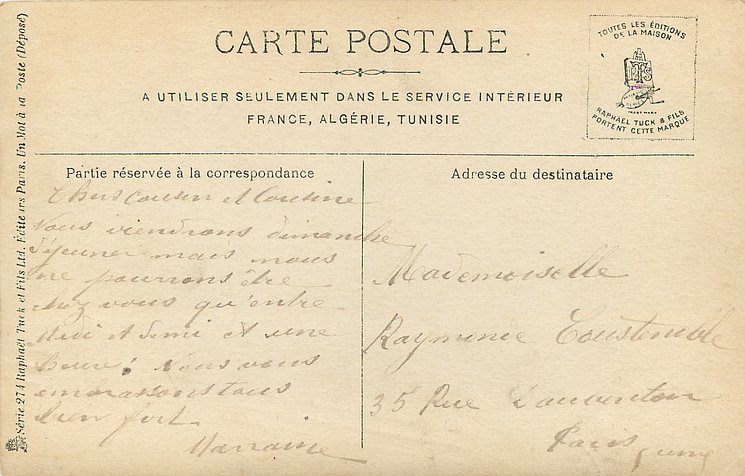 CARTE POSTALE
A UTILISER SEULEMENT DANS LE SERVICE INTÉRIEUR
FRANCE, ALGÉRIE, TUNISIE
TOUTES LES ÉDITIONS
DE LA MAISON
RAPHAEL TUCK & FILS
PORTENT CETTE MARQUE
Série 274 Raphaël Tuck et Fils Ltd. Éditeurs Paris. Un Mot à la Poste (Déposé)
Partie réservée à la correspondance
Chers Cousin et Cousine
Nous viendrons dimanche
déjeuner mais nous
ne pourrons être
chez vous qu'entre
Midi et demi et une
heure! Nous vous
embrassons tous
bien fort
Marraine
Adresse du destinataire
Mademoiselle
35 Rue
Paris